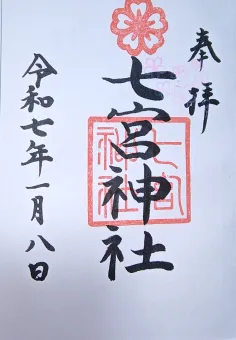 奉拝
七宮神社
七宮神社
令和七年一月八日